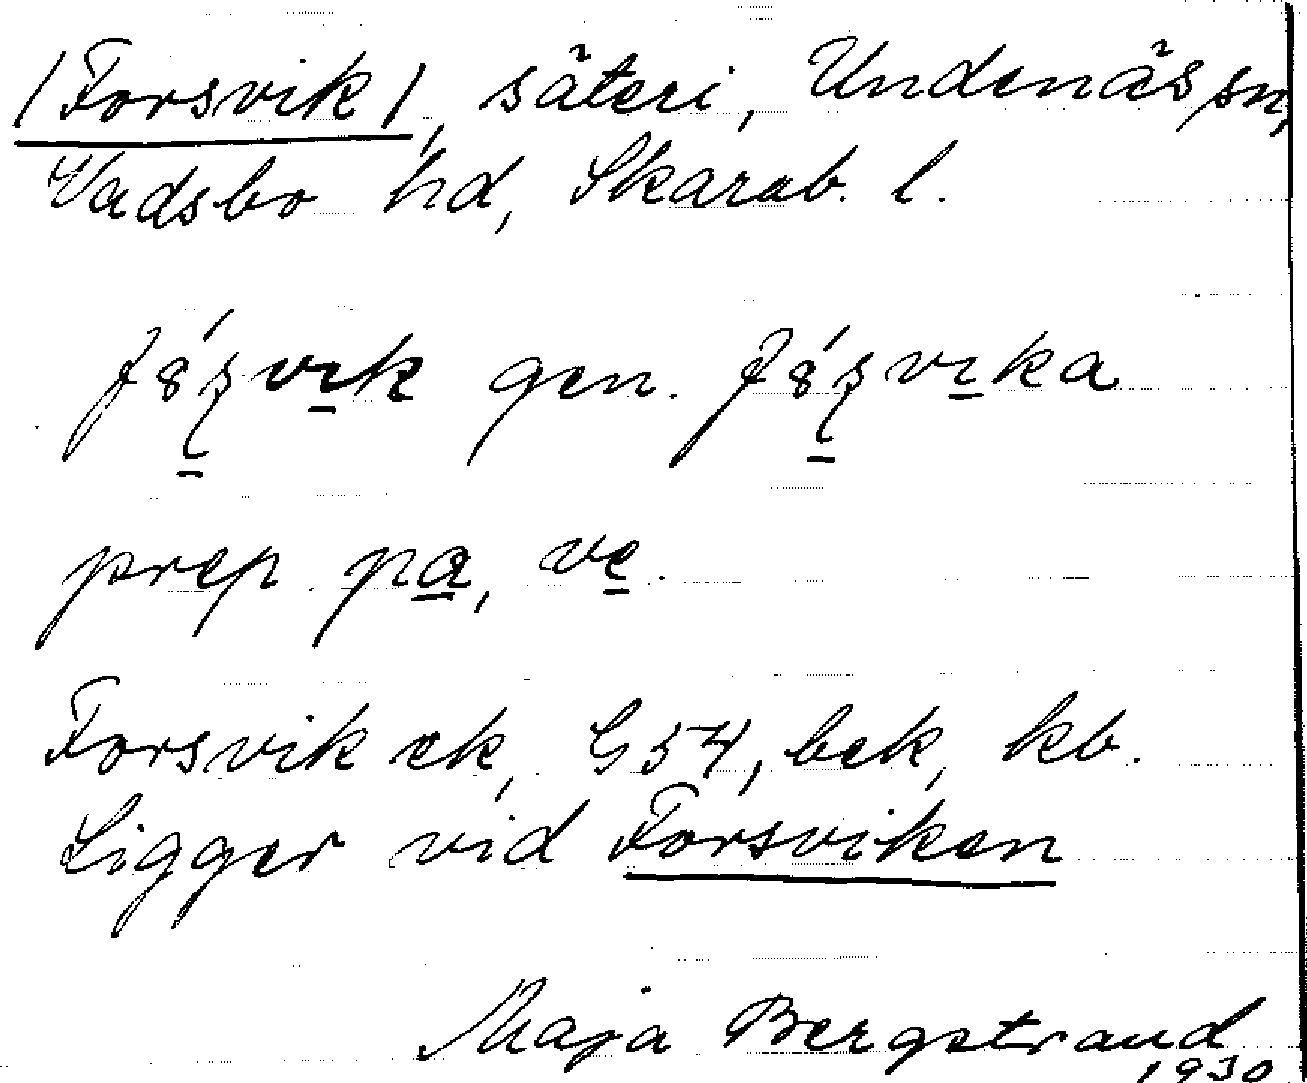 /Forsvik/, säteri, Undenäs sn,
Vadsbo hd, Skarab. l.
gen.
prep. pa, ve.
Forsvik ek, G54, bek, kb.
Ligger vid Forsviken
Maja Bergstrand
1930